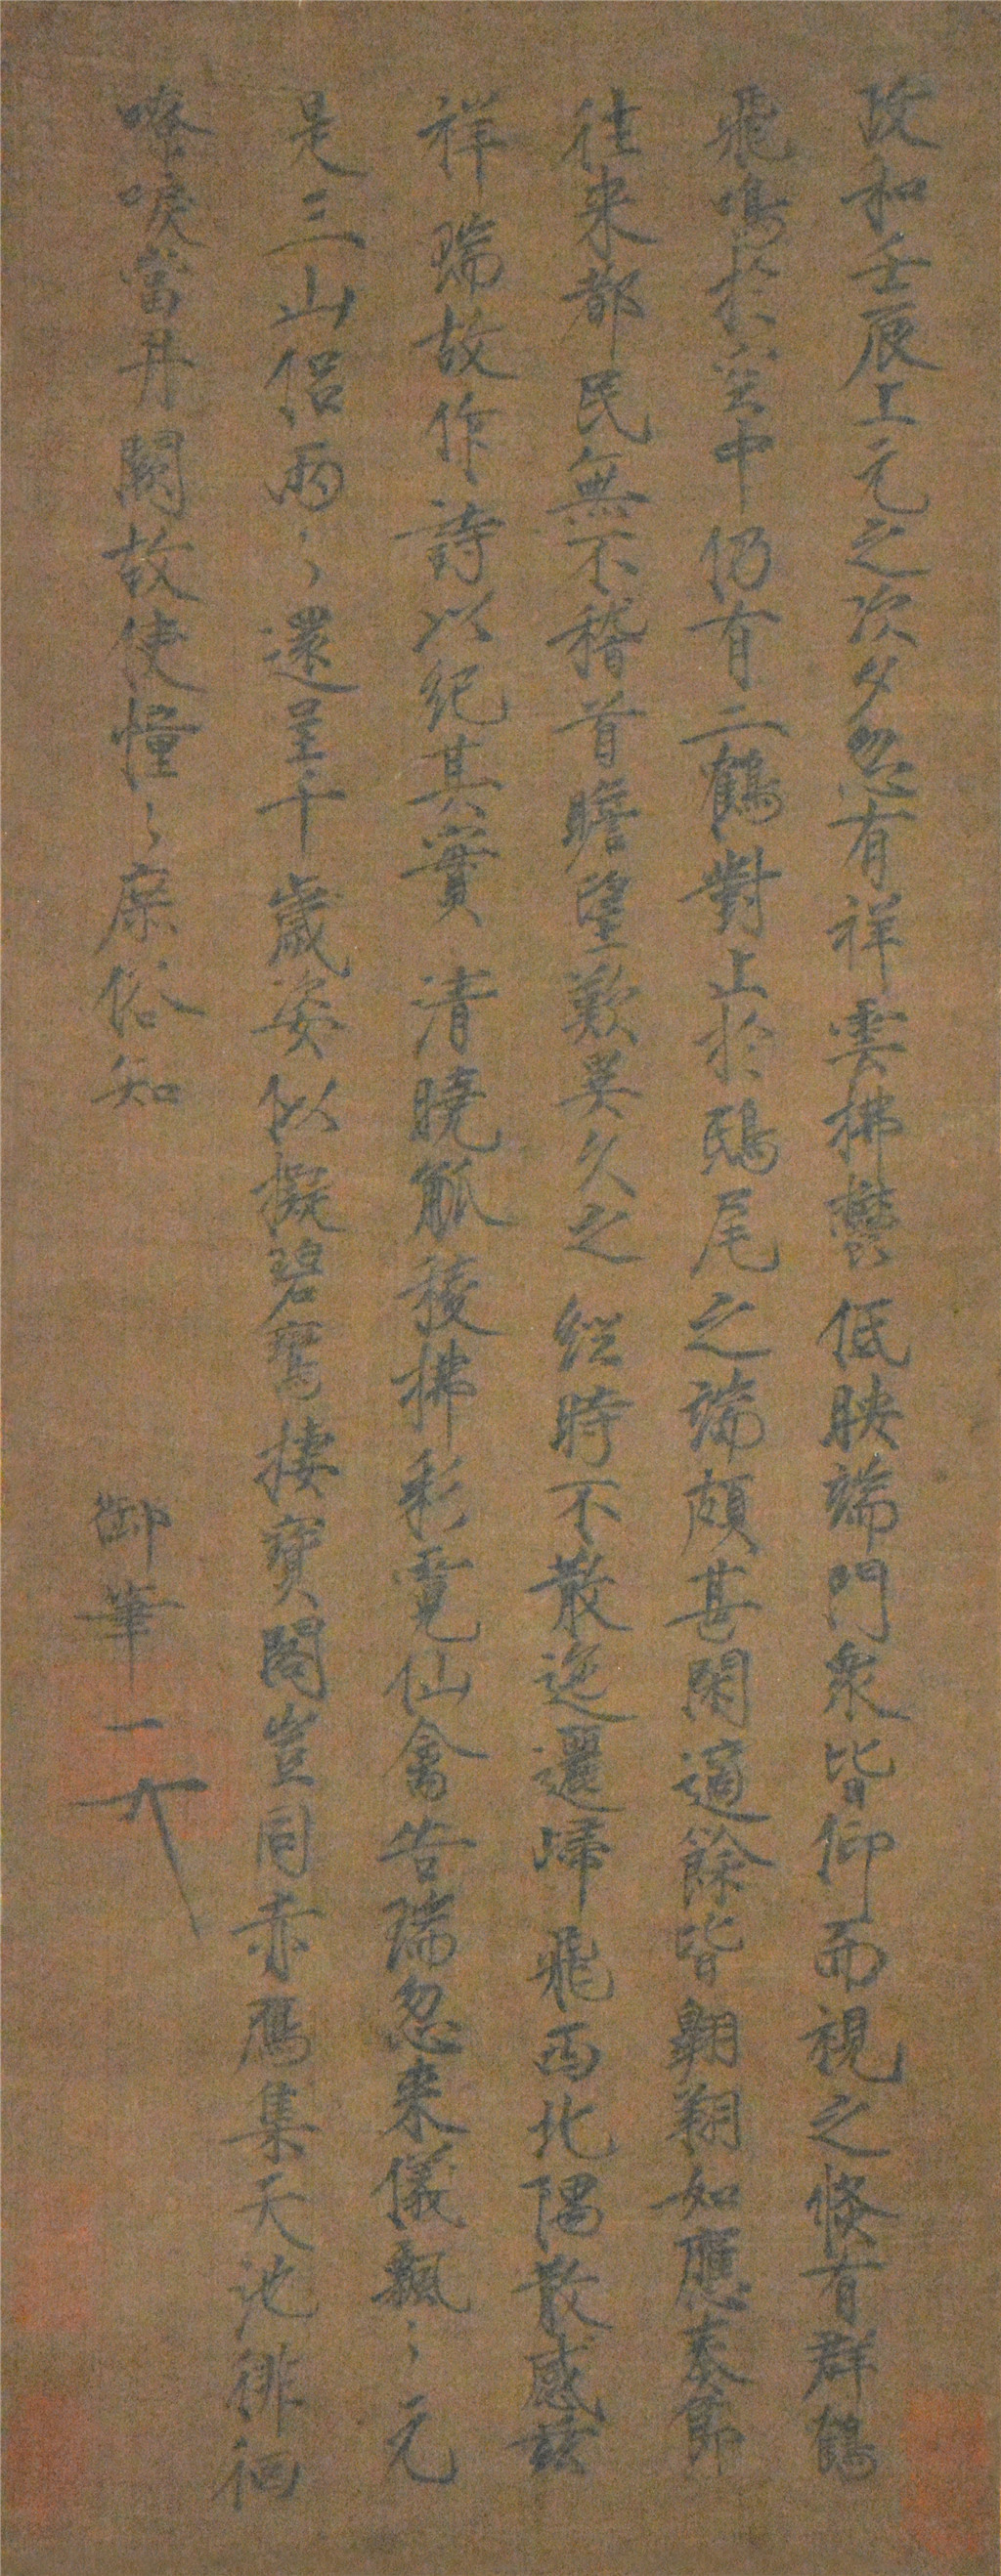 政和壬辰上元之次夕忽有祥雲拂鬱低映端門衆皆仰而視之倏有群鶴
飛鳴於空中仍有二鶴對止於鴟尾之端頗甚閑適餘皆翱翔如應奏節
往来都民無不稽首瞻望歎異久之經時不散迤邐歸飛西北隅散感茲
祥瑞故作詩以紀其實 清曉觚稜拂彩霓仙禽告瑞忽来儀飄〻元
是三山侶兩〻還呈千歲姿似擬碧鸞棲寶閣豈同赤鴈集天池徘徊
嘹唳當丹闕故使憧〻庶俗知
御筆